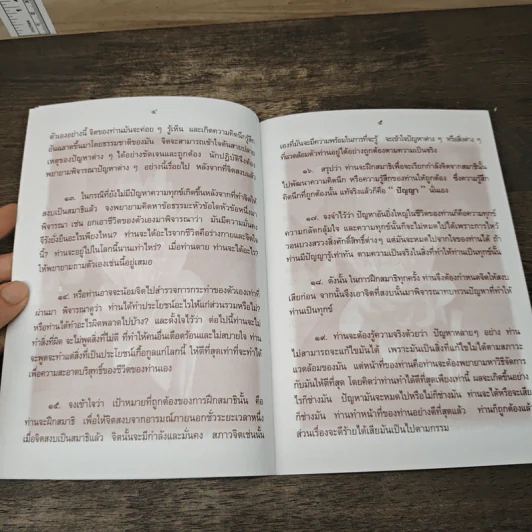 ๔
ตัวเองอย่างนี้ จิตของท่านมันจะค่อย ๆ รู้เห็น และเกิดความคิดนึกรู้สึก
อันฉลาดขึ้นมาโดยธรรมชาติของมัน จิตจะสามารถเข้าใจต้นสายปลาย
เหตุของปัญหาต่าง ๆ ได้อย่างชัดเจนและถูกต้อง นักปฏิบัติจึงต้อง
พยายามพิจารณาปัญหาต่าง ๆ อย่างนี้เรื่อยไป หลังจากที่จิตสงบแล้ว
๑๓. ในกรณีที่ยังไม่มีปัญหาความทุกข์เกิดขึ้นหลังจากที่ทำจิตให้
สงบเป็นสมาธิแล้ว จงพยายามคิดหาข้อธรรมะหัวข้อใดหัวข้อหนึ่งมา
พิจารณา เช่น ยกเอาชีวิตของตัวเองมาพิจารณาว่า มันมีความมั่นคง
จีรังยั่งยืนอะไรเพียงไหน? ท่านจะได้อะไรจากชีวิตคือร่างกายและจิตใจ
นี้? ท่านจะอยู่ไปในโลกนี้นานเท่าไหร่? เมื่อท่านตาย ท่านจะได้อะไร?
ให้พยายามถามตัวเองเช่นนี้อยู่เสมอ
๑๔. หรือท่านอาจจะน้อมจิตไปสำรวจการกระทำของตัวเองเท่าที่
ผ่านมา พิจารณาดูว่า ท่านได้ทำประโยชน์อะไรให้แก่ส่วนรวมหรือไม่?
หรือท่านได้ทำอะไรผิดพลาดไปบ้าง? และตั้งใจไว้ว่า ต่อไปนี้ท่านจะไม่
ทำสิ่งที่ผิด จะไม่พูดสิ่งที่ไม่ดี ที่ทำให้คนอื่นเดือดร้อนและไม่สบายใจ ท่าน
จะพูดจะทำแต่สิ่งที่เป็นประโยชน์เกื้อกูลแก่โลกนี้ ให้ดีที่สุดเท่าที่จะทำได้
เพื่อความสะอาดบริสุทธิ์ของชีวิตของท่านเอง
๑๕. จงเข้าใจว่า เป้าหมายที่ถูกต้องของการฝึกสมาธินั้น คือ
ท่านจะฝึกสมาธิ เพื่อให้จิตสงบจากอารมณ์ภายนอกชั่วระยะเวลาหนึ่ง
เมื่อจิตสงบเป็นสมาธิแล้ว จิตนั้นจะมีกำลังและมั่นคง สภาวจิตเช่นนั้น
๕
เองที่มันจะมีความพร้อมในการที่จะรู้ จะเข้าใจปัญหาต่าง ๆ หรือสิ่งต่าง ๆ
ที่แวดล้อมตัวท่านอยู่ได้อย่างถูกต้องตามความเป็นจริง
๑๖. สรุปว่า ท่านจะฝึกสมาธิเพื่อจะเรียกกำลังจิตจากสมาธินั้น
ไปพัฒนาความคิดนึก หรือความรู้สึกของท่านให้ถูกต้อง ซึ่งความรู้สึก
คิดนึกที่ถูกต้องนั้น แท้จริงแล้วก็คือ " ปัญญา " นั่นเอง
๑๗. จงจำไว้ว่า ปัญหาอันยิ่งใหญ่ในชีวิตของท่านก็คือความทุกข์
ความกลัดกลุ้มใจ และความทุกข์นั้นก็จะไม่หมดไปได้เพราะการไหว้
วอนบวงสรวงสิ่งศักดิ์สิทธิ์ต่าง ๆ แต่มันจะหมดไปจากใจของท่านได้ ถ้า
ท่านมีปัญญารู้เท่าทัน ตามความเป็นจริงในสิ่งที่ทำให้ท่านเป็นทุกข์นั้น
๑๘. ดังนั้น ในการฝึกสมาธิทุกครั้ง ท่านจึงต้องกำหนดจิตให้สงบ
เสียก่อน จากนั้นจึงเอาจิตที่สงบนั้นมาพิจารณาทบทวนปัญหาที่ทำให้
ท่านเป็นทุกข์
๑๙. ท่านจะต้องรู้ความจริงด้วยว่า ปัญหาหลายๆ อย่าง ท่าน
ไม่สามารถจะแก้ไขมันได้ เพราะมันเป็นสิ่งที่แก้ไขไม่ได้ตามสภาวะ
แวดล้อมของมัน แต่หน้าที่ของท่านคือท่านจะต้องพยายามหาวิธีจัดการ
กับมันให้ดีที่สุด โดยคิดว่าท่านทำได้ดีที่สุดเพียงเท่านี้ ผลจะเกิดขึ้นอย่าง
ไรก็ช่างมัน ปัญหามันจะหมดไปหรือไม่ก็ช่างมัน ท่านจะได้หรือจะเสีย
ก็ช่างมัน ท่านทำหน้าที่ของท่านอย่างดีที่สุดแล้ว ท่านก็ถูกต้องแล้ว
ส่วนเรื่องจะดีร้ายได้เสียมันเป็นไปตามกรรม